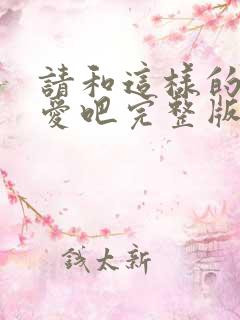 請和這樣的
愛吧完整版
錢太新